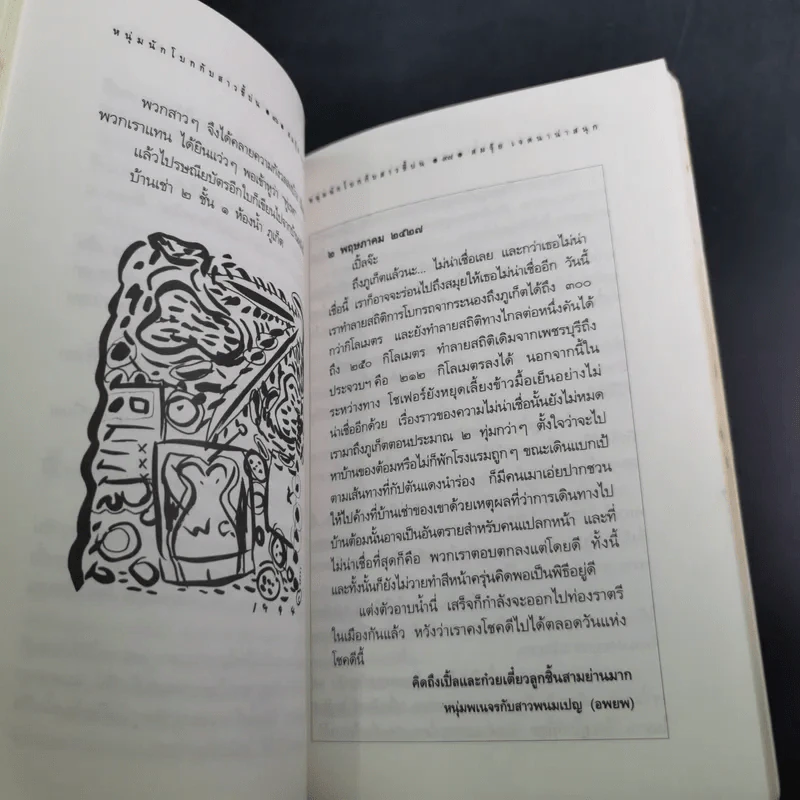 หนุ่มนักโบกกับสาวขี้บ่น
พวกสาวๆ จึงได้คลายความ
พวกเราแทน ได้ยินแว่วๆ พอเข้าหูว่า
แล้วไปรษณียบัตรอีกใบก็เขียนไปจาก
บ้านเช่า ๒ ชั้น ๑ ห้องน้ำ ภูเก็ต
1994
หนุ่มนักโบกกับสาวขี้บ่น ๑ ๓๗ ๑ สมจุ้ย เจตนาน่าสนุก
๒ พฤษภาคม ๒๕๒๗
เปิ้ลจ๊ะ
ถึงภูเก็ตแล้วนะ... ไม่น่าเชื่อเลย และกว่าเธอไม่น่า
เชื่อนี้ เราก็อาจจะร่อนไปถึงสมุยให้เธอไม่น่าเชื่ออีก วันนี้
เราทำลายสถิติการโบกรถจากระนองถึงภูเก็ตได้ถึง ๓๐๐
กว่ากิโลเมตร และยังทำลายสถิติทางไกลต่อหนึ่งคันได้
ถึง ๒๕๐ กิโลเมตร ทำลายสถิติเดิมจากเพชรบุรีถึง
ประจวบฯ คือ ๒๑๒ กิโลเมตรลงได้ นอกจากนี้ใน
ระหว่างทาง โชเฟอร์ยังหยุดเลี้ยงข้าวมื้อเย็นอย่างไม่
น่าเชื่ออีกด้วย เรื่องราวของความไม่น่าเชื่อนั้นยังไม่หมด
เรามาถึงภูเก็ตตอนประมาณ ๒ ทุ่มกว่าๆ ตั้งใจว่าจะไป
หาบ้านของต้อมหรือไม่ก็พักโรงแรมถูกๆ ขณะเดินแบกเป้
ตามเส้นทางที่กัปตันแดงนำร่อง ก็มีคนเมาเอ่ยปากชวน
ให้ไปค้างที่บ้านเช่าของเขาด้วยเหตุผลที่ว่าการเดินทางไป
บ้านต้อมนั้นอาจเป็นอันตรายสำหรับคนแปลกหน้า และที่
ไม่น่าเชื่อที่สุดก็คือ พวกเราตอบตกลงแต่โดยดี ทั้งนี้
และทั้งนั้นก็ยังไม่วายทำสีหน้าครุ่นคิดพอเป็นพิธีอยู่ดี
แต่งตัวอาบน้ำนี่ เสร็จก็กำลังจะออกไปท่องราตรี
ในเมืองกันแล้ว หวังว่าเราคงโชคดีไปได้ตลอดวันแห่ง
โชคดีนี้
คิดถึงเปิ้ลและก๋วยเตี๋ยวลูกชิ้นสามย่านมาก
หนุ่มพเนจรกับสาวพนมเปญ (อพยพ)